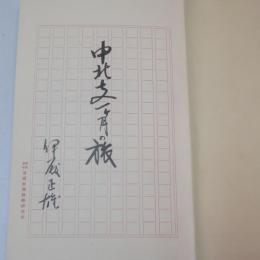 中北支一ヶ月の旅
伊藤正雄